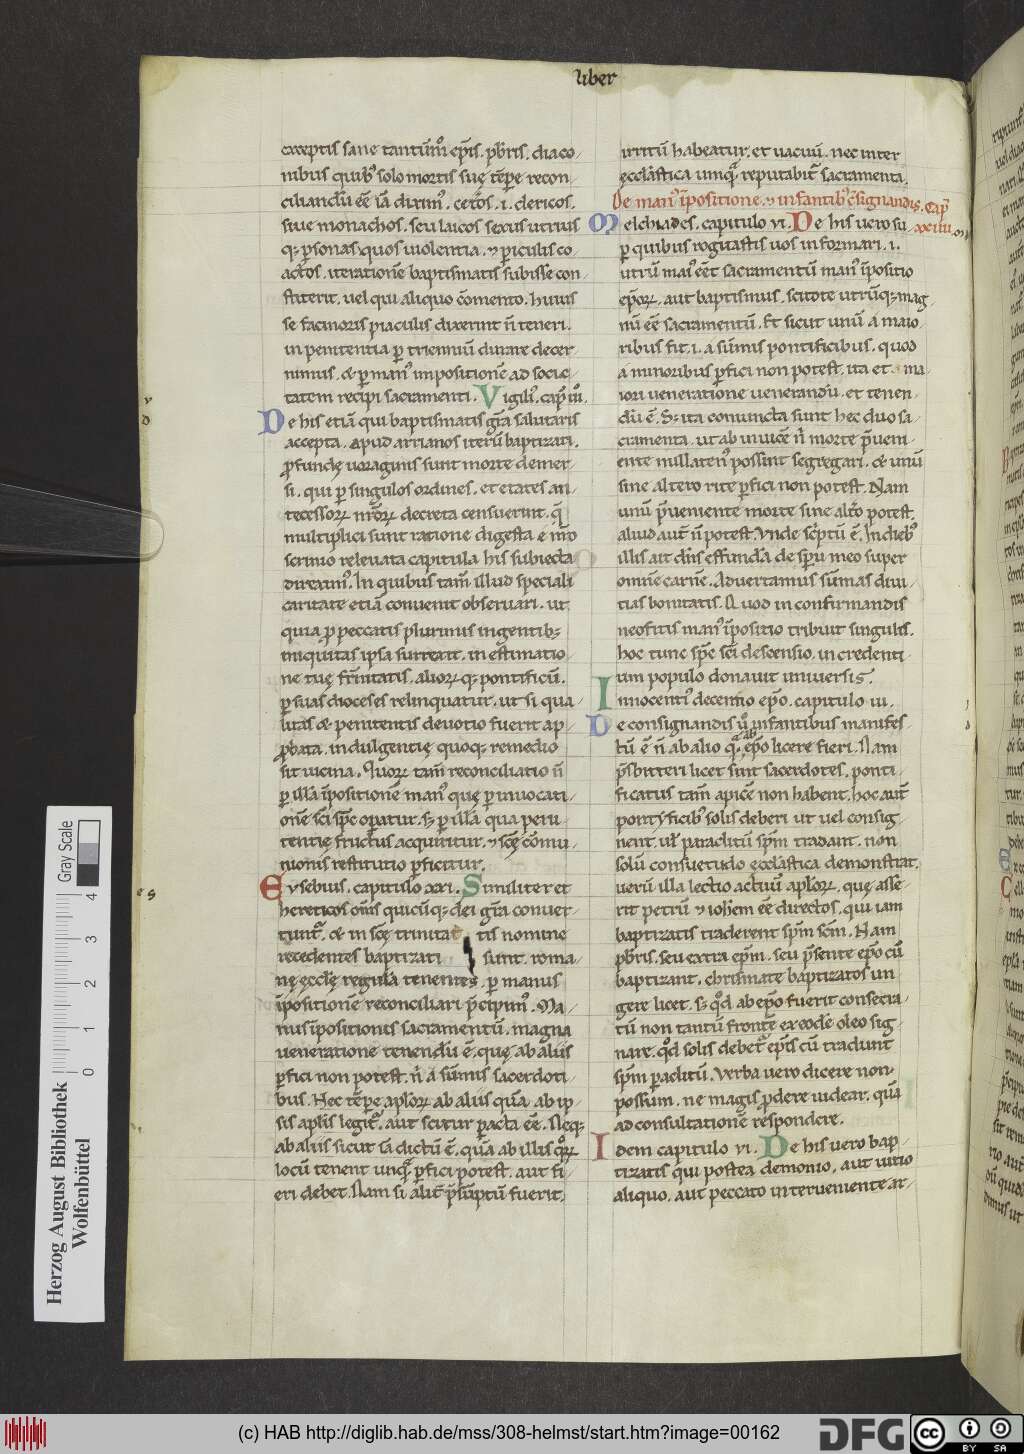 liber
exceptis sane tantūm̊ ep̄is. pb̄ris. diaco-
nibus quib᷒ solo mortis suę tēp̄e recon-
ciliandū eē iā dixim᷒. cet̄os .i. clericos.
siue monachos. seu laicos sexus utrius
q; p̱sonas quos uiolentia. ⁊ periculis co-
actos. iterationē baptismatis subisse con-
stiterit. uel qui aliquo cōmento. huius
se facinoris piaculis dixerint n̄ teneri.
in penitentia p̱ trienniū durare decer-
nimus. & p̱ man᷒ impositionē ad socie-
tatem recipi sacramenti. Vigili᷒. cap̄ iii.
De his etiā qui baptismatis gr̄a salutaris
accepta. apud arrianos iterū baptizati.
p̱fundę uoraginis sunt morte demer-
si. qui p̱ singulos ordines. et etates an-
tecessorꝝ nr̄orꝝ decreta censuerint. q̄
multiplici sunt ratione digesta e nr̄o
scrinio releuata capitula his subiecta
direxim᷒. In quibus tam̄ illud speciali
caritate etiā conuenit obseruari. ut
quia p̱ peccatis plurimis ingentib;
iniquitas ipsa surrexit. in estimatio-
ne tuę fr̄nitatis. aliorꝝ q; pontificū.
p̱ suas dioceses relinquatur. ut si qua-
litas & penitentis deuotio fuerit ap-
p̱bata. indulgentię quoq; remedio
sit uicina. Quorꝝ tam̄ reconciliatio n̄
p̱ illā īpositionē man᷒ quę p̱ inuocati-
onē sc̄i sp̄c op̱atur. s; p̱ illā qua peni-
tentię fructus acquiritur. ⁊ sc̄ę cōmu-
nionis restitutio p̱ficitur.
Eusebius. capitulo xxi. Similiter et
hereticos om̄s quicūq; dei gr̄a conuer-
tunt᷒. & in sc̄ę trinitatis nomine
recedentes baptizati sunt. roma-
nę ęccl̄ę regula tenentes. p̱ manus
īpositionē reconciliari p̄cipim᷒. Ma-
nus īpositionis sacramentū. magna
ueneratione tenendū ē. quę ab aliis
p̱fici non potest. n̄ a sūmis sacerdoti-
bus. Nec tēp̱e ap̄lorꝝ ab aliis quā. ab ip-
sis ap̄lis legit᷒. aut scitur p̱acta eē. Neq;
ab aliis sicut iā dictū ē. quā ab illis q̊rꝝ
locū tenent unq̄ p̱fici potest. aut fi-
eri debet. Nam si alit̄ p̄sūptū fuerit.
irritū habeatur. et uacuū. nec inter
ęccl̄astica umq̄ reputabit᷒ sacramenta.
De man᷒ īpositione. ⁊ infantib᷒ c̄signandis. Cap̄
xxiiii.
Melchiades. capitulo vi. De his uero su-
p̱ quibus rogastis uos informari .i.
utrū mai᷒ eēt sacramentū man᷒ īpositio
ep̄orꝝ. aut baptismus. scitote utrūq; mag-
nū eē sacramentū. Et sicut unū a maio-
ribus fit .i. a sūmis pontificibus. quod
a minoribus p̱fici non potest. ita et ma-
iori ueneratione uenerandū. et tenen-
dū ē. S; ita coniuncta sunt hec duo sa-
cramenta. ut ab inuicē n̄ morte p̄ueni-
ente nullaten᷒ possint segregari. & unū
sine altero rite p̱fici non potest. Nam
unū p̄ueniente morte sine alt̄o potest.
aliud aut̄ n̄ potest. Vnde sc̄ptū ē. In dieb᷒
illis ait dn̄s effundā de sp̄u meo super
omnē carnē. Aduertamus sūmas diui-
tias bonitatis. Quod in confirmandis
neofitis man᷒ īpositio tribuit singulis.
hoc tunc sp̄c sc̄i descensio. in credenti-
um populo donauit uniuersis.
Innocenti᷒ decennio ep̄o. capitulo iii.
De consignandis ů infantibus manifes-
tū ē n̄ ab alio q̄ ab ep̄o licere fieri. Nam
p̄sbitteri licet sint sacerdotes. ponti-
ficatus tam̄ apicē non habent. hoc aut̄
pontificib᷒ solis deberi ut uel consig-
nent. ul̄ paraclitū sp̄m tradant. non
solū consuetudo ęccl̄astica demonstrat.
uerū illa lectio actuū ap̄lorꝝ. quę asse-
rit petrū ⁊ ioh̄em eē directos. qui iam
baptizatis traderent sp̄m sc̄m. Nam
pb̄ris. seu extra ep̄m. seu p̄sente ep̄o cū
baptizant. chrismate baptizatos un-
gere licet. s; qd̊ ab ep̄o fuerit consecra-
tū non tantū frontē ex eodē oleo sig-
nare. qd̊ solis debet᷒ ep̄is cū tradunt
sp̄m p̱aclitū. Verba uero dicere non
possum. ne magis p̱dere uidear. quā
ad consultationē respondere.
Idem capitulo vi. De his uero bap-
tizatis qui postea demonio. aut uitio
aliquo. aut peccato interueniente ar-
Gray Scale
4 3 2 1 0
Herzog August Bibliothek
Wolfenbüttel
(c) HAB http://diglib.hab.de/mss/308-helmst/start.htm?image=00162
DFG
cc BY SA